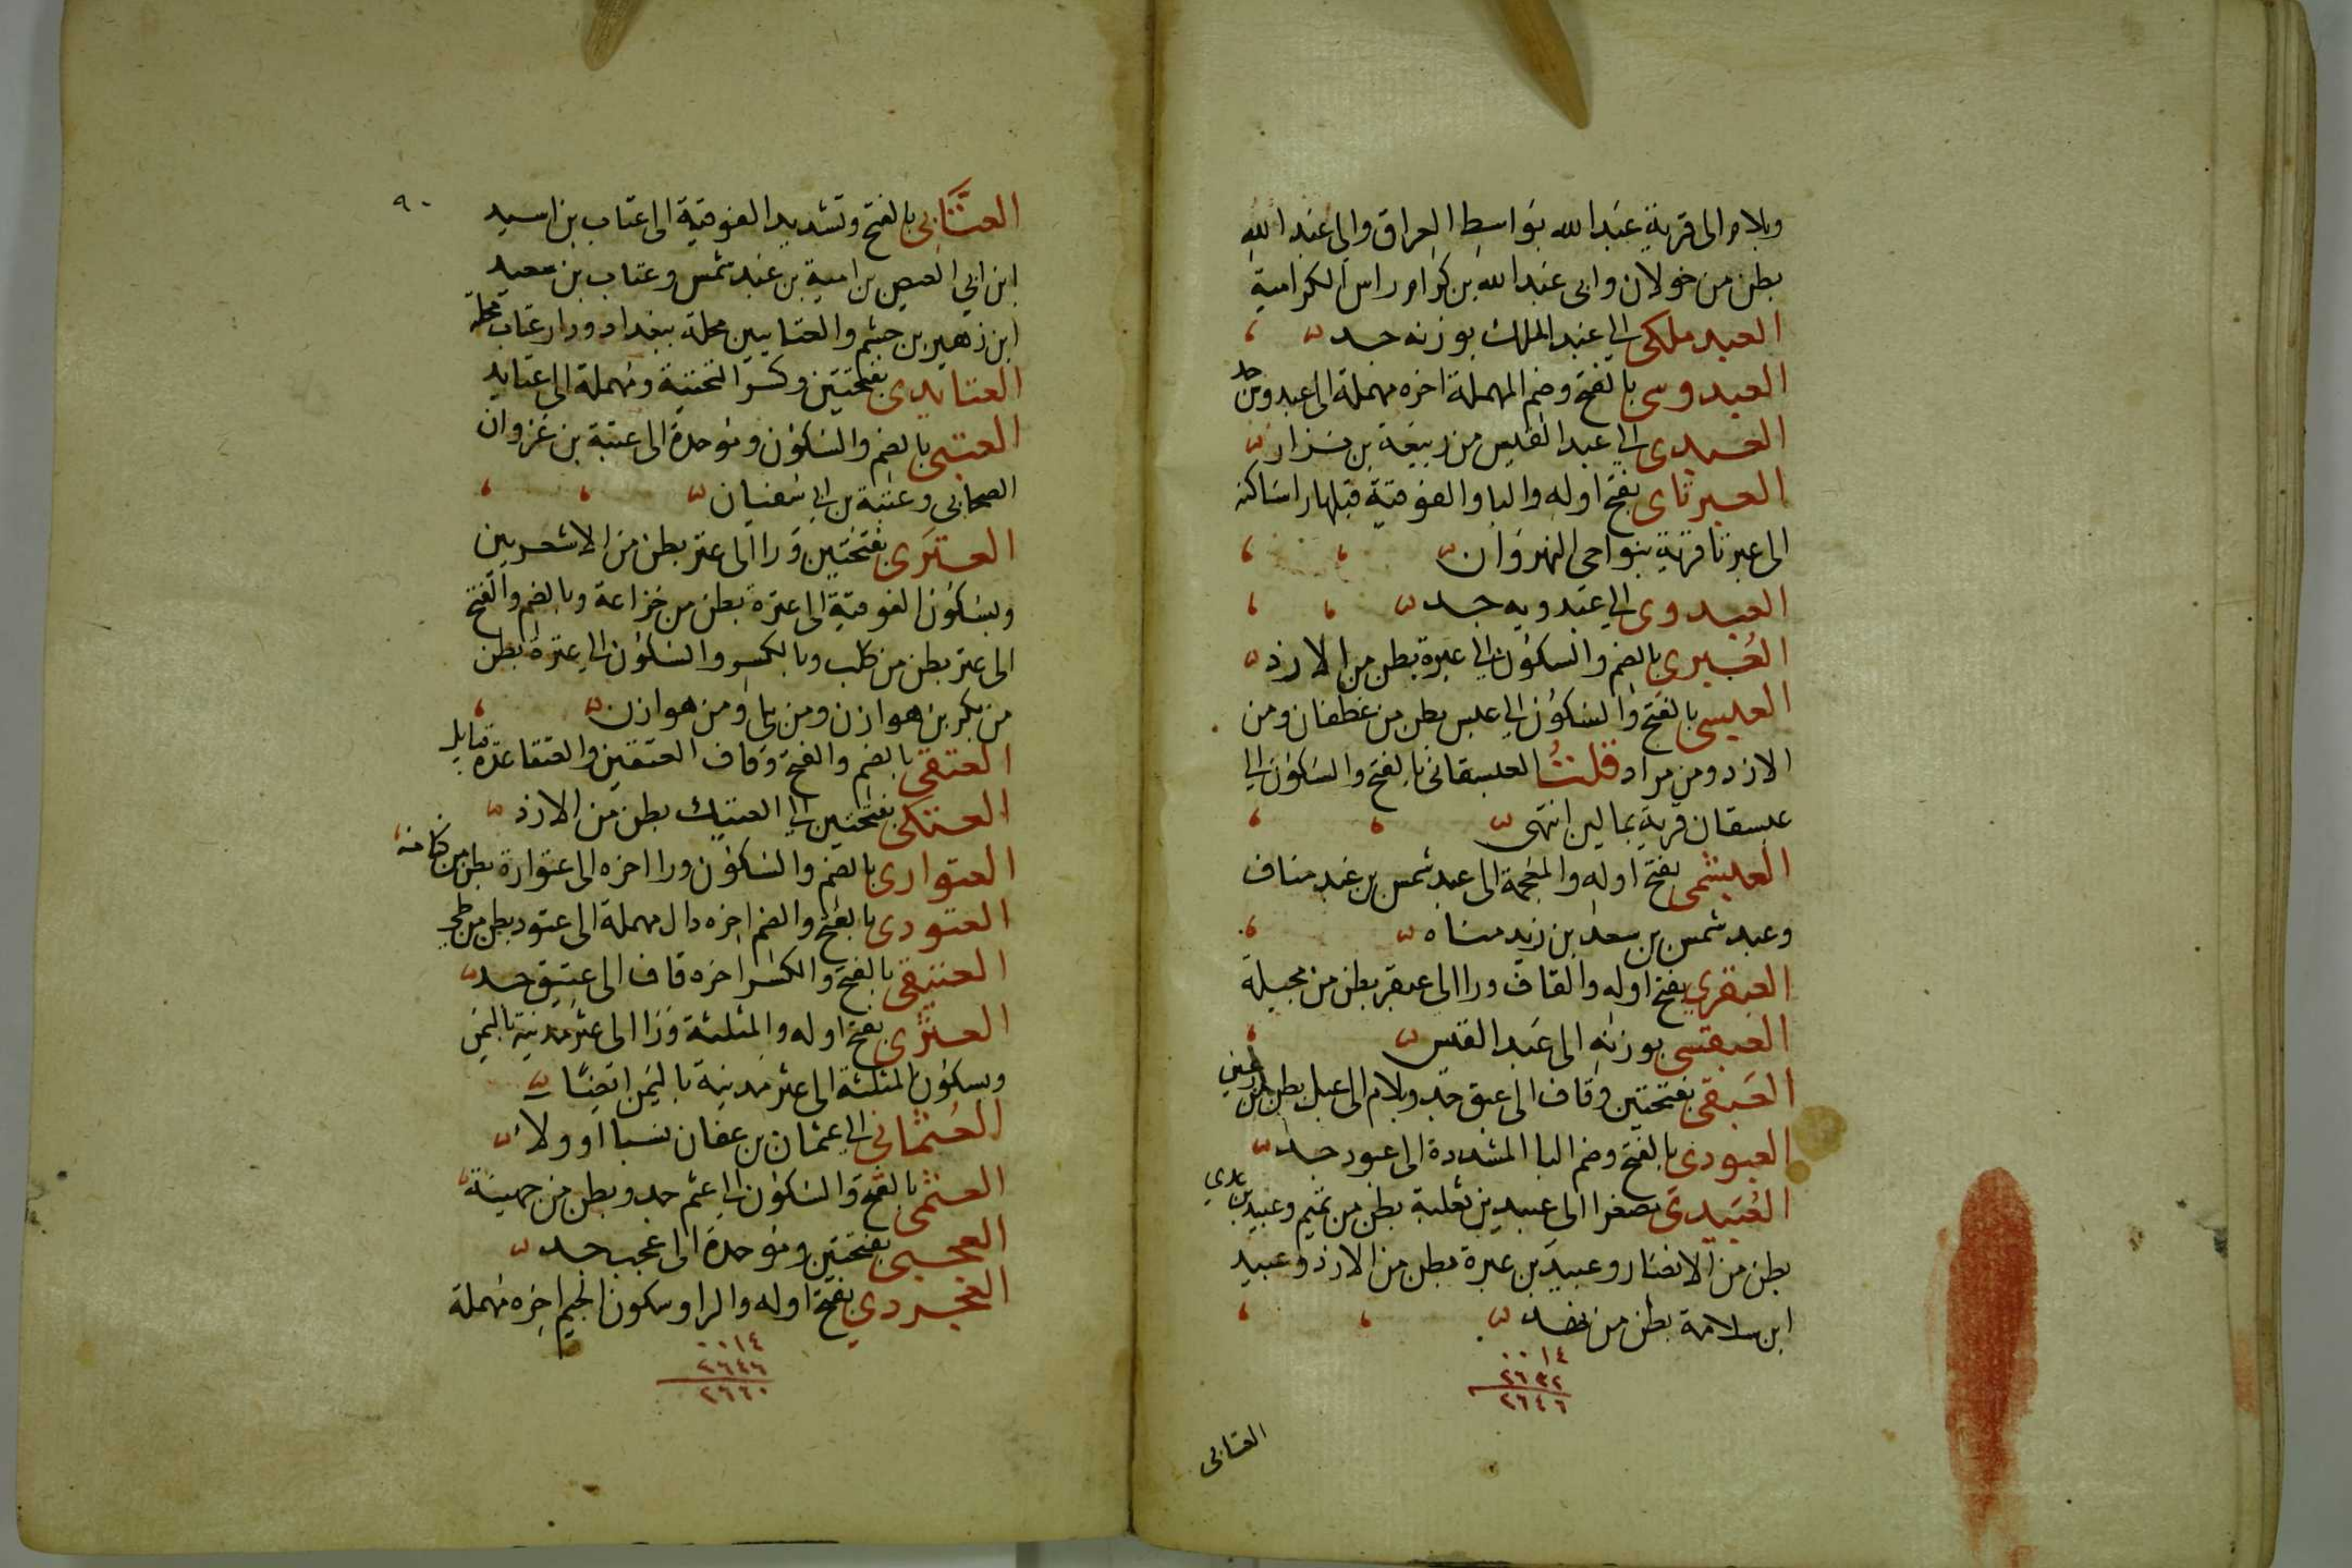 وبلام والى قرية عبد الله بواسط العراق والى عبد الله
بطن من خولان وابى عبد الله بن كرام راس الكرامية
العبد ملكى الى عبد الملك بوزنه جد
العبدوسى بالفتح وضم المهملة اخره مهملة الى عبدوس جد
العبدى الى عبد القيس من ربيعة بن نزار
العبرتاى بفتح اوله والبا والفوقية قبلها را ساكنه
الى عبرتا قرية بنواحى النهروان
العبدوى الى عبدويه جد
العُبرى بالضم والسكون الى عبرة بطن من الازد
العبسى بالفتح والسكون الى عبس بطن من غطفان ومن
الازد ومن مراد قلت العبسقانى بالفتح والسكون الى
عبسقان قرية بمالين انتهى
العبشمى بفتح اوله والمعجمة الى عبد شمس بن عبد مناف
وعبد شمس بن سعد بن زيد مناه
العبقرى بفتح اوله والقاف ورا الى عبقر بطن من بجيلة
العبقسى بوزنه الى عبد القيس
العَبقى بفتحتين وقاف الى عبق جد وبلام الى عبل بطن من رعين
العبودى بالفتح وضم البا المشددة الى عبود جد
العُبَيدى مصغرا الى عبيد بن ثعلبة بطن من تميم وعبيد بن عدي
بطن من الانصار وعبيد بن عبرة بطن من الازد وعبيد
ابن سلامة بطن من نهد
٠٠١٤
٢٦٣٢
٢٦٤٦
العتابى
٩٠
العتَّابى بالفتح وتشديد الفوقية الى عتاب بن اسيد
ابن ابي العيص بن امية بن عبد شمس وعتاب بن سعيد
ابن زهير بن جشم والعتابيين محلة ببغداد ودار عتاب محلة
العتايدى بفتحتين وكسر التحتية ومهملة الى عتايد
العتبى بالضم والسكون وموحدة الى عتبة بن غزوان
الصحابى وعتبة بن ابى سفيان
العترى بفتحتين ورا الى عتر بطن من الاشعريين
وبسكون الفوقية الى عترة بطن من خزاعة وبالضم والفتح
الى عتر بطن من كلب وبالكسر والسكون الى عترة بطن
من بكر بن هوازن ومن بلى ومن هوازن
العتقى بالضم والفتح وقاف العتقيين والعتقا عدة قبايل
العتكى بفتحتين الى العتيك بطن من الازد
العتوارى بالضم والسكون ورا اخره الى عتوارة بطن من كنانه
العتودى بالفتح والضم اخره دال مهملة الى عتود بطن من طي
العتيقى بالفتح والكسر اخره قاف الى عتيق جد
العثرى بفتح اوله والمثلثة ورا الى عثر مدينة باليمن
وبسكون المثلثة الى عثر مدينة باليمن ايضا
العُثمانى الى عثمان بن عفان نسبا او ولا
العثمى بالفتح والسكون الى عثم جد وبطن من جهينة
العجبى بفتحتين وموحدة الى عجب جد
العجردي بفتح اوله والرا وسكون الجيم اخره مهملة
٠٠١٤
٢٦٤٦
٢٦٦٠